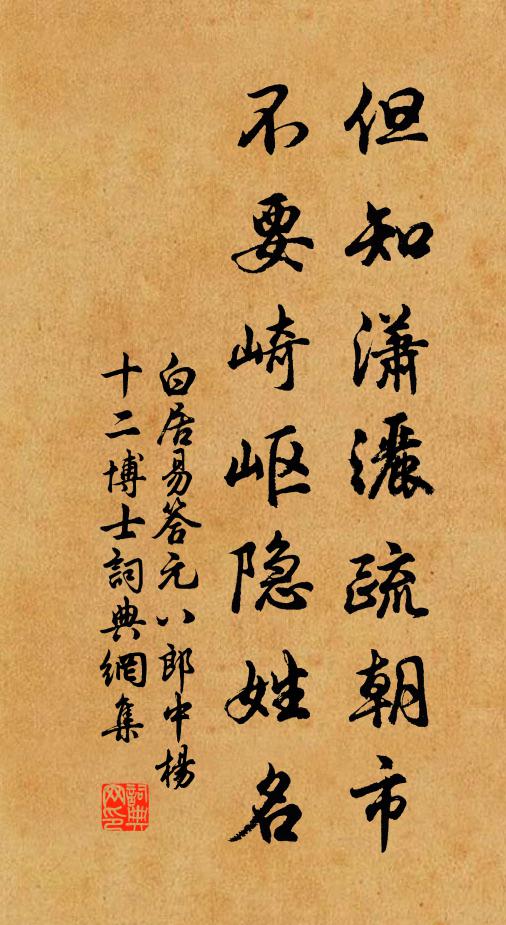 但知瀟灑疏朝市
不要崎岖隐姓名
白居易答元八郎中楊
十二博士詞典網集
詞典網印